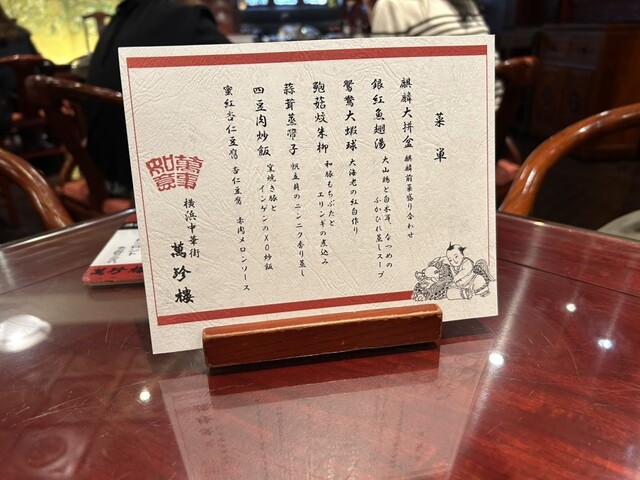 菜単
麒麟大拼盆 麒麟前菜盛り合わせ
銀紅魚翅湯 大山鶏と白木耳、なつめの
ふかひれ蒸しスープ
鴛鴦大蝦球 大海老の紅白作り
鮑菇炆朱柳 和豚もちぶたと
エリンギの煮込み
蒜茸蒸帯子 帆立貝のニンニク香り蒸し
四豆肉炒飯 窯焼き豚と
インゲンのXO炒飯
蜜紅杏仁豆腐 杏仁豆腐 赤肉メロンソース
萬事如意
横浜中華街
萬珍樓
萬珍樓